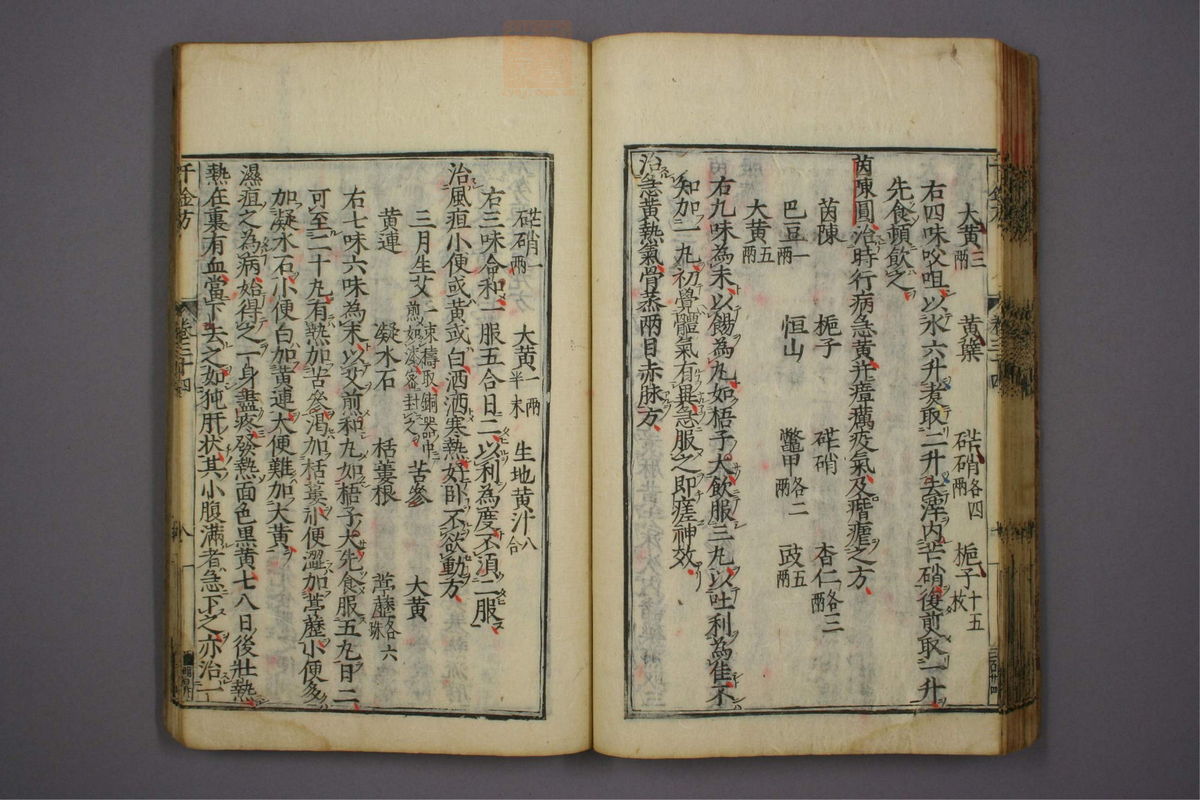 大黃三兩 黃蘗 硭硝各四兩 梔子十五枚
右四味㕮咀以水六升煮取二升去滓內芒硝復煎取一升
先食頓飲之
茵陳圓治時行病急黃并瘴癘疫氣及痎瘧之方
茵陳 梔子 硭硝 杏仁各三兩
巴豆一兩 恒山 鼈甲各二兩 豉五兩
大黃五兩
右九味為末以餳為丸如梧子大飲服三丸以吐利為佳不
知加一丸初覺體氣有異急服之即瘥神效
治急黃熱氣骨蒸兩目赤脉方
硭硝一兩 大黃一兩半末 生地黃汁八合
右三味合和一服五合日二以利為度不須二服
治風疸小便或黃或白洒洒寒熱好卧不欲動方
三月生艾一束擣取汁銅器中煎如漆密封之 苦參 大黃
黃連 凝水石 栝蔞根 葶藶各六銖
右七味六味為末以艾煎和丸如梧子大先食服五丸日二
可至二十丸有熱加苦參渴加栝蔞小便澀加葶藶小便多
加凝水石小便白加黃連大便難加大黃
濕疸之為病始得之一身盡疼發熱面色黑黃七八日後壯熱
熱在裏有血當下去之如㹠肝狀其小腹滿者急下之亦治一
千金方 卷三十四